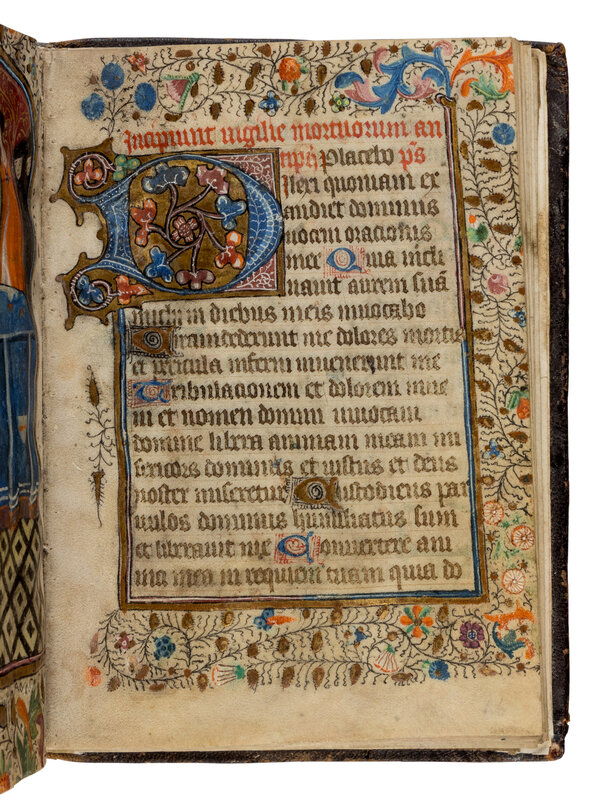 Incipiunt vigilie mortuorum an
Placebo ps
Dilexi quoniam ex
audiet dominus
vocem orationis
mee Quia incli
navit aurem suā
michi in diebus meis invocabo
Circumdederunt me dolores mortis
et pericula inferni invenerunt me
Tribulacionem et dolorem inve
ni et nomen domini invocavi
domine libera animam meam mi
sericors dominus et iustus et deus
noster miseretur Custodiens par
vulos dominus humiliatus sum
et liberavit me Convertere ani
ma mea in requiem tuam quia do